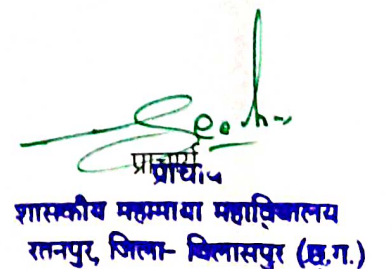 प्राचार्य
प्राचार्य
शासकीय महामाया महाविद्यालय
रतनपुर, जिला- बिलासपुर (छ.ग.)